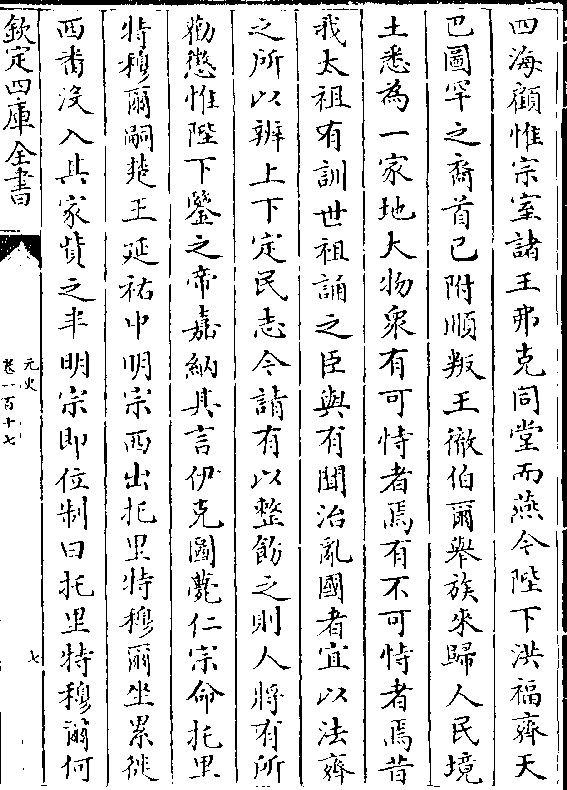 四海顧惟宗室諸王弗克同堂而燕今陛下洪福齊天
巴圖罕之裔首已附順叛王徹伯爾舉族來歸人民境
土悉為一家地大物衆有可恃者焉有不可恃者焉昔
我太祖有訓世祖誦之臣與有聞治亂國者宜以法齊
之所以辨上下定民志今請有以整飭之則人將有所
勸懲惟陛下鑒之帝嘉納其言伊克圖薨仁宗命托里
特穆爾嗣楚王延祐中明宗西出托里特穆爾坐累徙
西畨沒入其家貲之半明宗即位制曰托里特穆爾何
欽定四庫全書
元史
卷一百十七
七